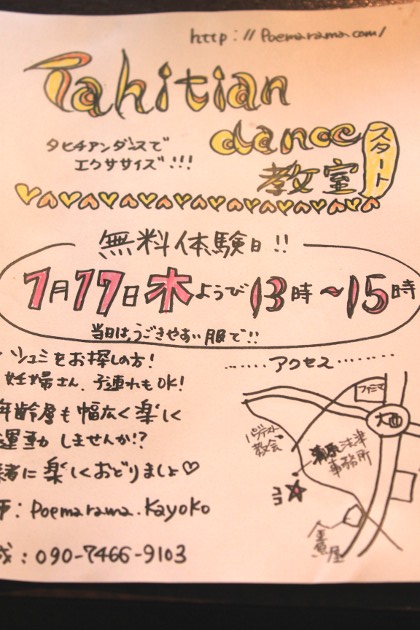 http://Poemarama.com/
Tahitian
dance
タヒチアンダンスで
エクササイズ!!!
教室
スタート
無料体験日!!
7月17日木ようび13時~15時
当日は、うごきやすい服で!!
シュミをお探しの方!
妊婦さん、子連れもOK!
年齢層も幅広く楽しく
運動しませんか!?
緒に楽しくおどりましょ♡
師:Poemarama.Kayoko
:090-7466-9103
アクセス
ファミマ
大西
教会
法律
事務所
ココ
★
屋